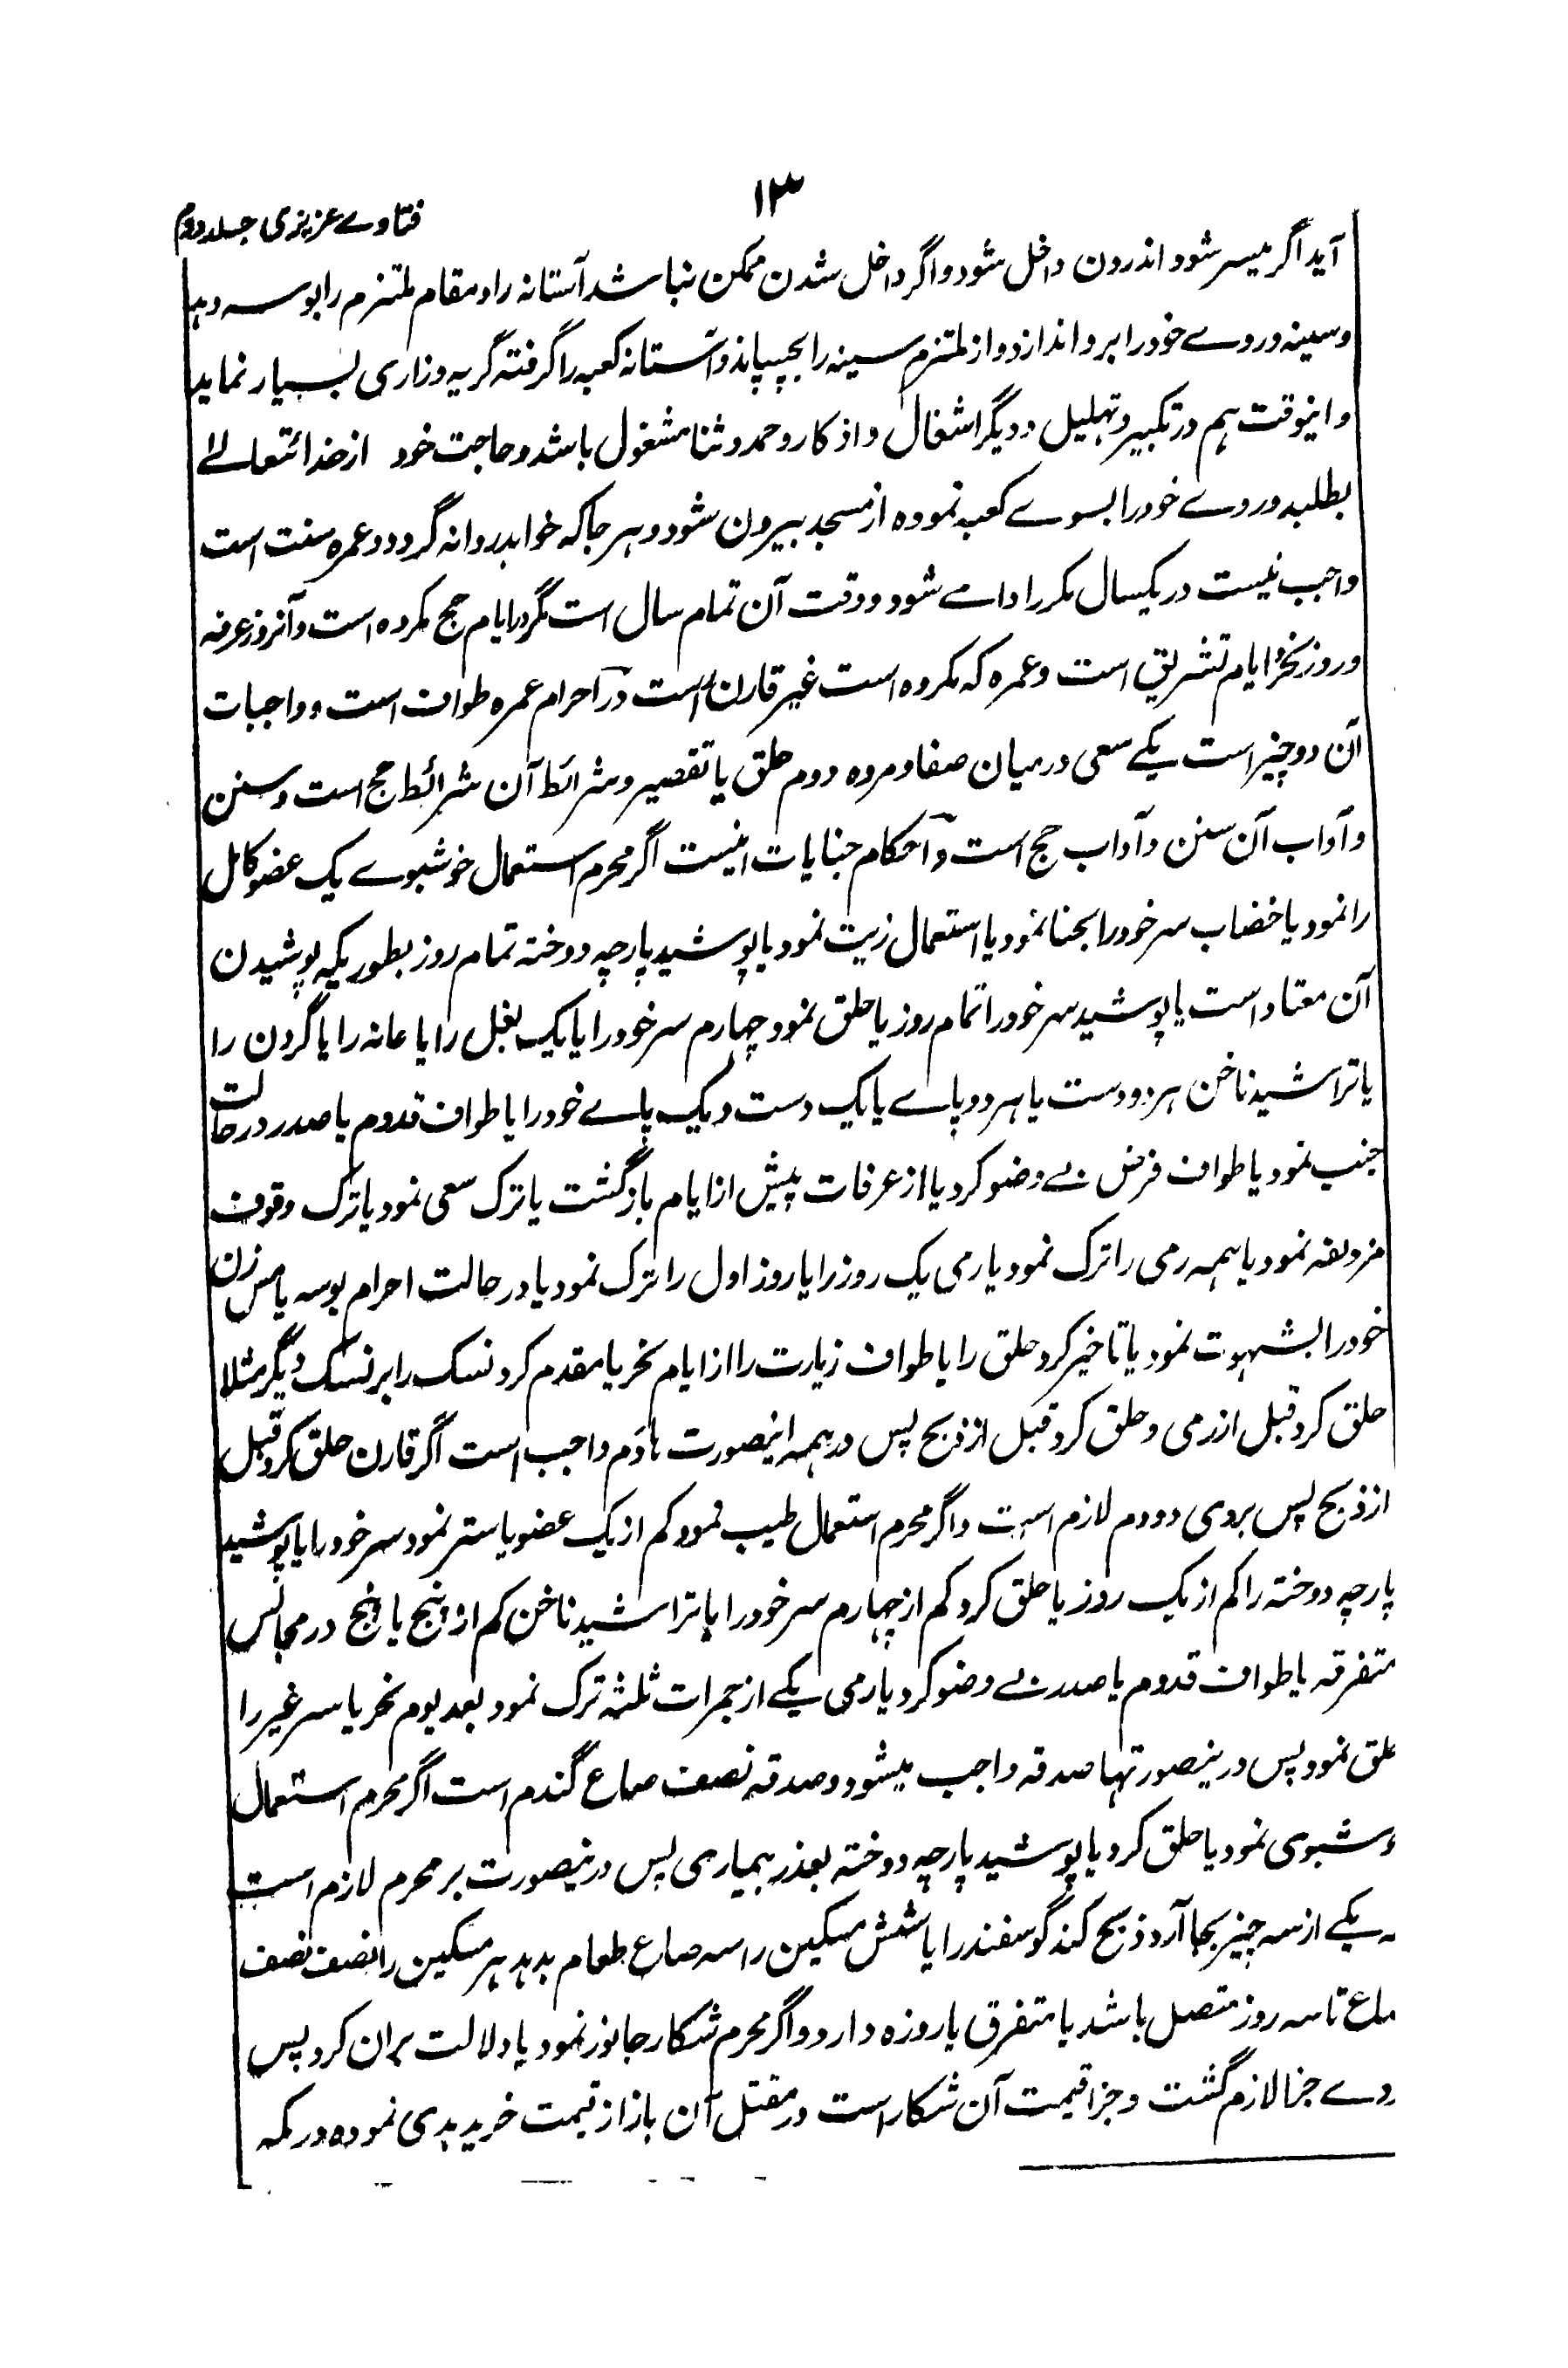 ۱۳
فتاوے عزیزی جلد دوم
آید اگر میسر شود اندرون داخل شود و اگر داخل شدن ممکن نباشد آستانہ را و مقام ملتزم را بوسہ دہد
و سینہ و روے خود را برو اندازد و از ملتزم سینہ را بچسپاند و آستانہ کعبہ را گرفتہ گریہ وزاری بسیار نماید
و اینوقت ہم در تکبیر و تہلیل و دیگر اشغال و اذکار و حمد و ثنا مشغول باشد و حاجت خود از خدائتعالے
بطلبد و روے خود را بسوے کعبہ نمودہ از مسجد بیرون شود و ہر جا کہ خواہد روانہ گردد و عمرہ سنت است
واجب نیست در یکسال مکرر ادا مے شود و وقت آن تمام سال است مگر در ایام حج مکروہ است و آنروز عرفہ
و روز نحر و ایام تشریق است و عمرہ کہ مکروہ است غیر قارن است در احرام عمرہ طواف است و واجبات
آن دو چیز است یکے سعی درمیان صفا و مروہ دوم حلق یا تقصیر و شرائط آن شرائط حج است و سنن
و آداب آن سنن و آداب حج است و احکام جنایات اینست اگر محرم استعمال خوشبوے یک عضو کامل
را نمود یا خضاب سر خود را بحنا نمود یا استعمال زیت نمود یا پوشید پارچہ دوختہ تمام روز بطوریکہ پوشیدن
آن معتاد است یا پوشید سر خود را تمام روز یا حلق نمود چہارم سر خود را یا یک بغل را یا عانہ را یا گردن را
یا تراشید ناخن ہر دو دست یا ہر دو پاے یا یک دست و یک پاے خود را یا طواف قدوم یا صدر در حالت
جنب نمود یا طواف فرض بے وضو کرد یا از عرفات پیش از ایام بازگشت یا ترک سعی نمود یا ترک وقوف
مزدلفہ نمود یا ہمہ رمی را ترک نمود یا رمی یک روز را یا روز اول را ترک نمود یا در حالت احرام بوسہ یا مس زن
خود را بشہوت نمود یا تاخیر کرد حلق را یا طواف زیارت را از ایام نحر یا مقدم کرد نسک را بر نسک دیگر مثلا
حلق کرد قبل از رمی و حلق کرد قبل از ذبح پس در ہمہ اینصورت ہا دم واجب است اگر قارن حلق کرد قبل
از ذبح پس بروی دو دم لازم است و اگر محرم استعمال طیب نمود کم از یک عضو یا ستر نمود سر خود را یا پوشید
پارچہ دوختہ را کم از یک روز یا حلق کرد کم از چہارم سر خود را یا تراشید ناخن کم از پنج یا پنج در مجالس
متفرقہ یا طواف قدوم یا صدر بے وضو کرد یا رمی یکے از جمرات ثلثہ ترک نمود بعد یوم نحر یا سر غیر را
علق نمود پس درینصورتہا صدقہ واجب میشود و صدقہ نصف صاع گندم است اگر محرم استعمال
وشبوی نمود یا حلق کرد یا پوشید پارچہ دوختہ بعذر بیماری پس درینصورت بر محرم لازم است
ـہ یکے از سہ چیز بجا آرد ذبح کند گوسفند را یا شش مسکین را سہ صاع طعام بدہد ہر مسکین را نصف نصف
ـاع تا سہ روز متصل باشد یا متفرق یا روزہ دارد و اگر محرم شکار جانور نمود یا دلالت بران کرد پس
ـروے جزا لازم گشت و جزا قیمت آن شکار است در مقتل آن باز از قیمت خرید ہدی نمودہ در مکہ